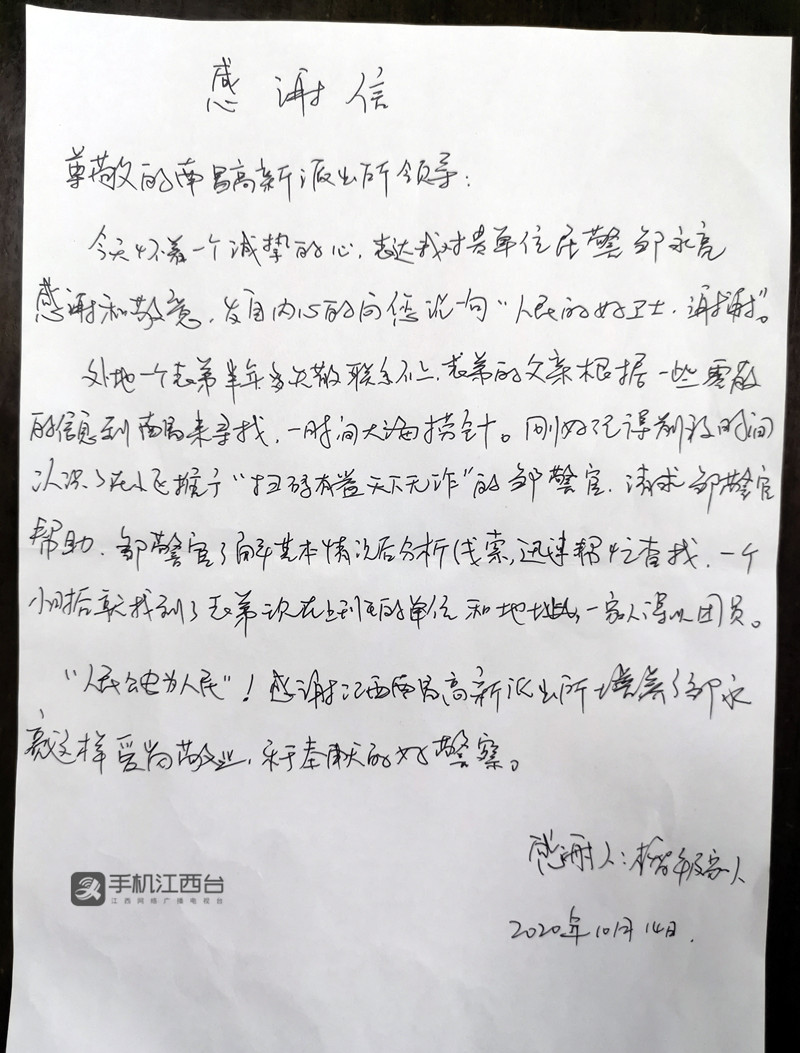 感谢信
尊敬的南昌高新派出所领导：
今天怀着一个诚挚的心，表达我对贵单位民警邹永亮
感谢和敬意，发自内心的向您说一句“人民的好卫士，谢谢”。
外地一个表弟半年多失散联系不上，表弟的父亲根据一些零散
的信息到南昌来寻找，一时间大海捞针。刚好记得前段时间
认识了在小区推广“扫码有益天下无诈”的邹警官，请求邹警官
帮助，邹警官了解基本情况后分析线索，迅速帮忙查找，一个
小时后就找到了表弟的单位和地址，一家人得以团员。
“人民公安为人民”！感谢江西南昌高新派出所培养了邹永
亮这样爱岗敬业，乐于奉献的好警察。
感谢人：家人
2020年10月14日.
手机江西台
江西网络广播电视台